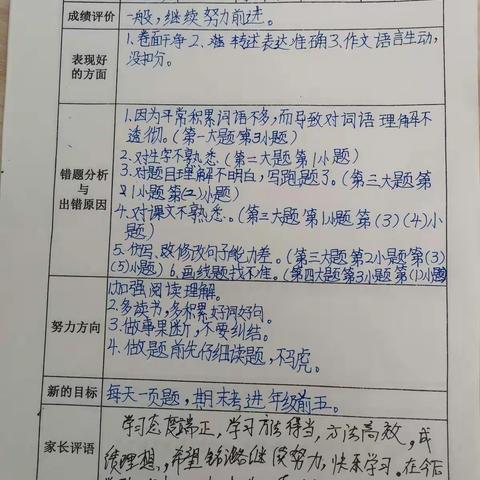 成绩评价
一般,继续努力前进。
表现好
的方面
1、卷面干净 2、 转述表达准确 3、作文语言生动,
没扣分。
错题分析
与
出错原因
1.因为平常积累词语不多,而导致对词语理解不
透彻。(第一大题第3小题)
2.对生字不熟悉。(第二大题第1小题)
3.对题目理解不明白,写跑题了。(第三大题第
2 1小题第(2)小题)
4.对课文不熟悉。(第三大题第1小题第(3)(4)小
题)
5.仿写、改修改句子能力差。(第三大题第2小题第(3)
(5)小题) 6.画线题找不准。(第四大题第3小题第(1)小题)
努力方向
1.加强阅读理解。
2.多读书,多积累好词好句。
3.做事果断,不要纠结。
4.做题前先仔细读题,不马虎。
新的目标
每天一页题,期末考进年级前五。
家长评语
学习态度端正,学习方法得当,方法高效,成
绩理想,希望铭潞继续努力,快乐学习。在今后